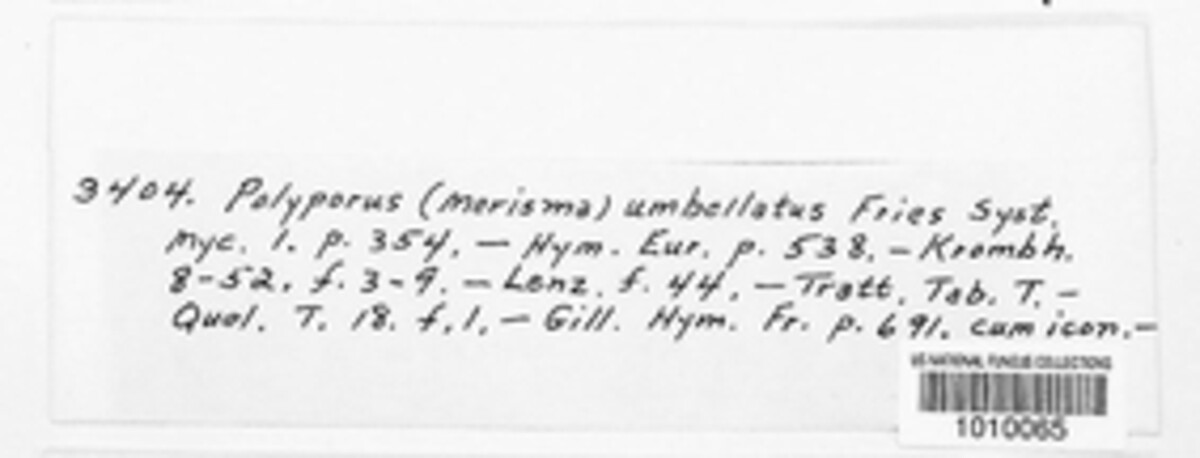 3404. Polyporus (Merisma) umbellatus Fries Syst.
Myc. 1. p. 354. — Hym. Eur. p. 538. — Krombh.
8-52. f. 3-9. — Lenz. f. 44. — Tratt. Tab. T. —
Quel. T. 18. f. 1. — Gill. Hym. Fr. p. 691. cum icon. —
US NATIONAL FUNGUS COLLECTIONS
1010065